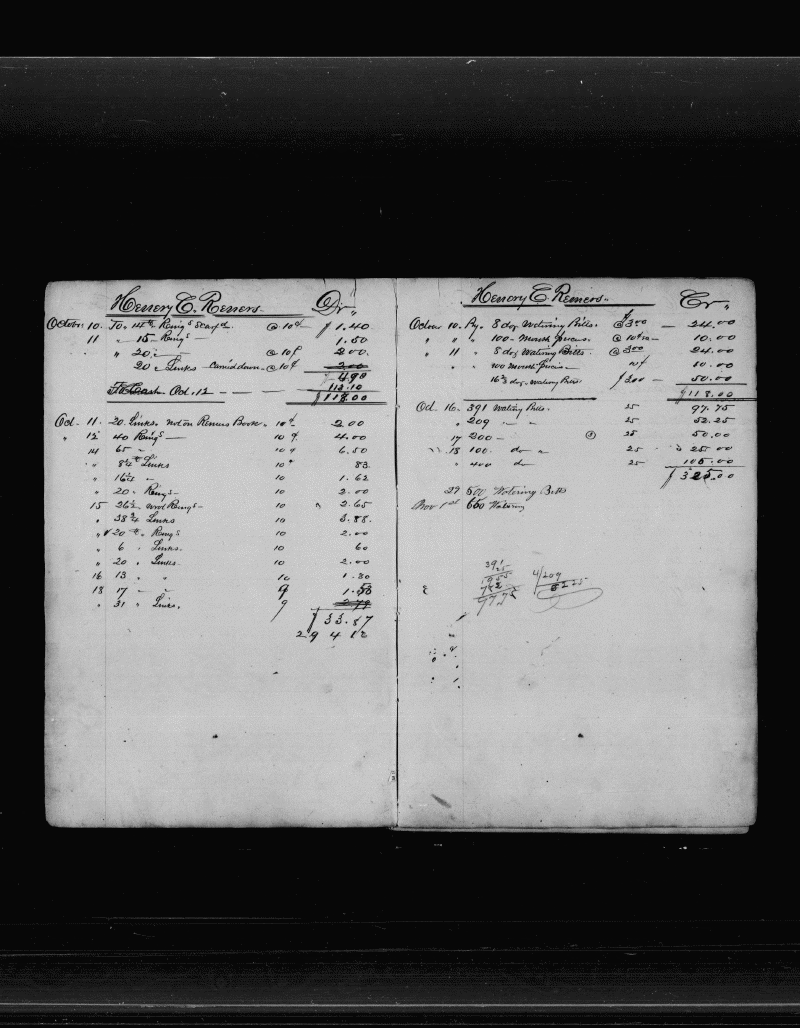 Henry C. Remers. Dr.
Octobr. 10. To. 14 Rings @ 10¢ $ 1.40
11 " 15 - Rings - 1.50
" 20 " - @ 10¢ 2.00
20 " Links - @ 10¢ 2.00
4.90
To Cash Oct. 12 - 113.10
$ 118.00
Oct. 11. 20 Links. not on Remers Book. 10¢ 2.00
" 12 40 Rings - 10 4.00
14 65 " 10 6.50
" 8¼ Links 10 83
" 16¼ " 10 1.62
" 20 " Rings - 10 2.00
15 26½ Rings - " 2.65
" 38¾ Links 10 3.88.
" 20 " Rings 10 2.00
" 6 " Links. 10 60
" 20 " Links. 10 2.00
16 13 " " 10 1.30
18 17 - 9 1.53
" 31 " Links. 9 2.79
$ 33.87
29 4 12
Henry C. Remers. Cr.
Octobr 10. By. 8 doz Watering Bitts. @ 3.00 - 24.00
" " " 100 - Mouth pieces. @ 10¢ - 10.00
" 11 " 8 doz Watering Bitts - @ 3.00 24.00
" 100 Mouth pieces - 10.00
16⅔ doz. watering Bitts $ 3.00 - 50.00
$ 118.00
Oct. 16. 391 Watering Bitts. 25 97.75
" 209 " " 25 52.25
17 200 - 25 50.00
18 100. do " 25 25.00
" 400 do 25 100.00
$ 325.00
29 500 Watering Bitts
Nov 1st 660 Watering
391
25
1955
782
9775
4/209
5225